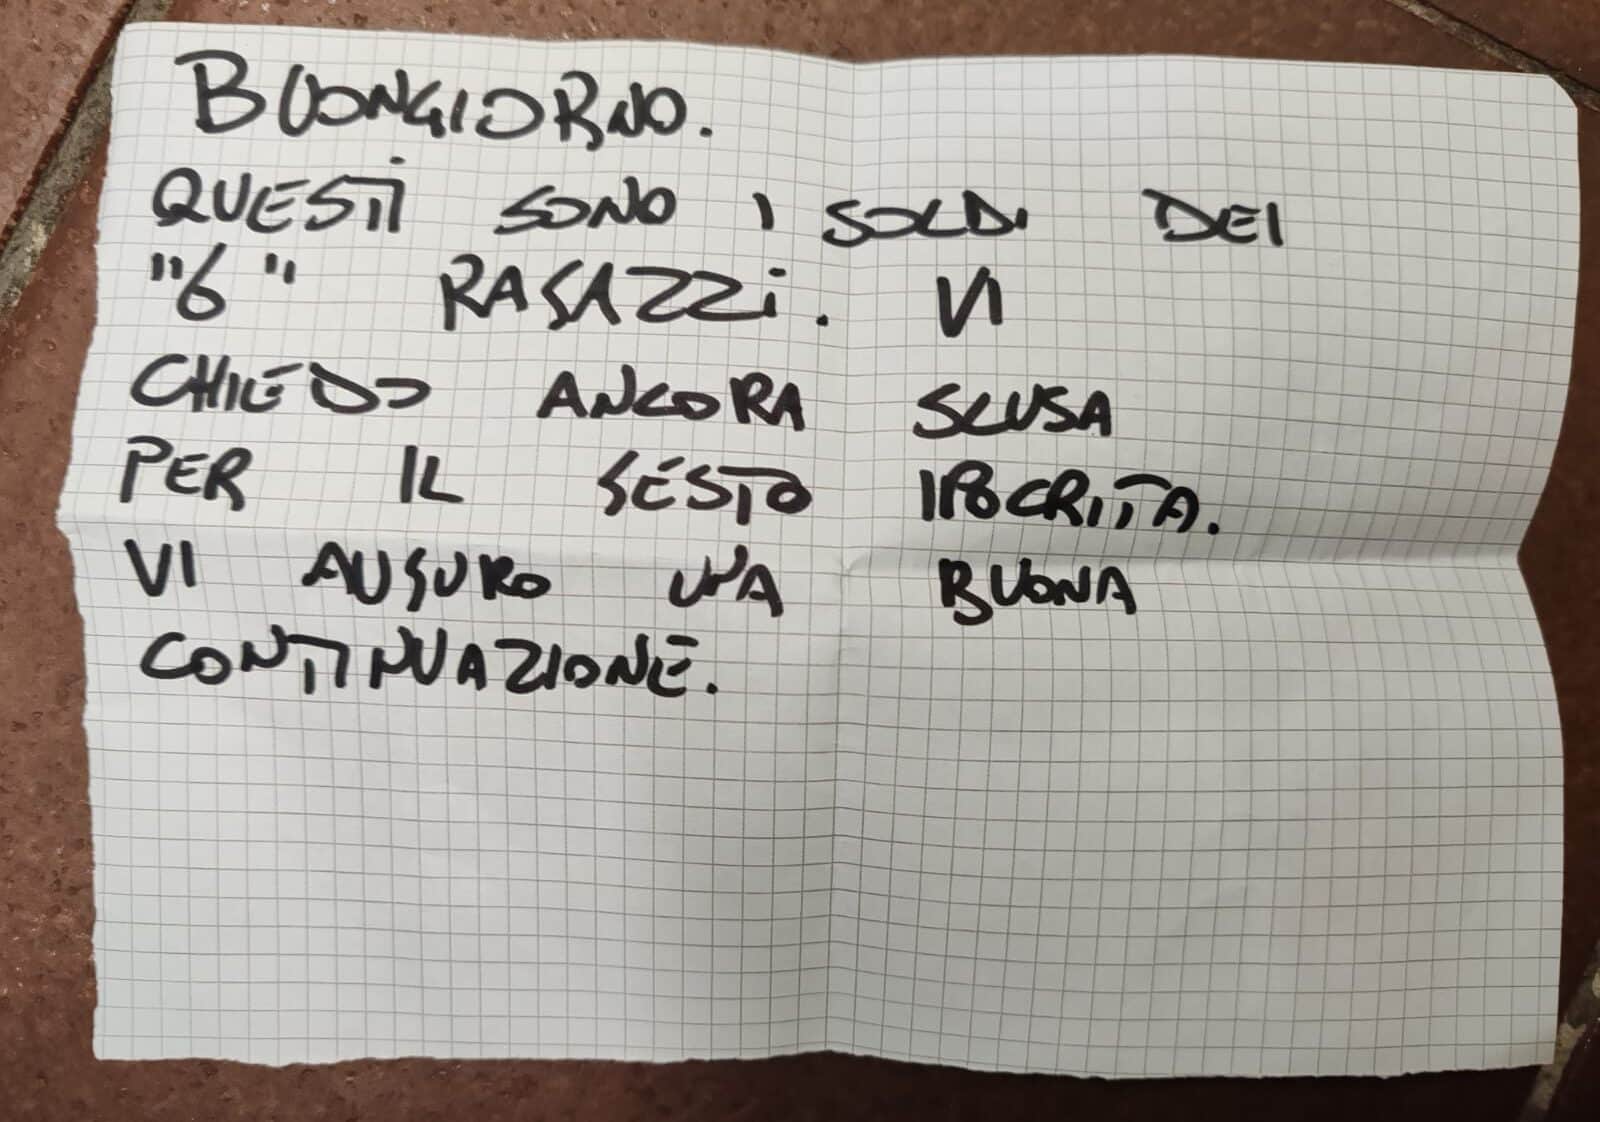 BUONGIORNO.
QUESTI SONO I SOLDI DEI
"6" RAGAZZI. VI
CHIEDO ANCORA SCUSA
PER IL SESTO IPOCRITA.
VI AUGURO UNA BUONA
CONTINUAZIONE.